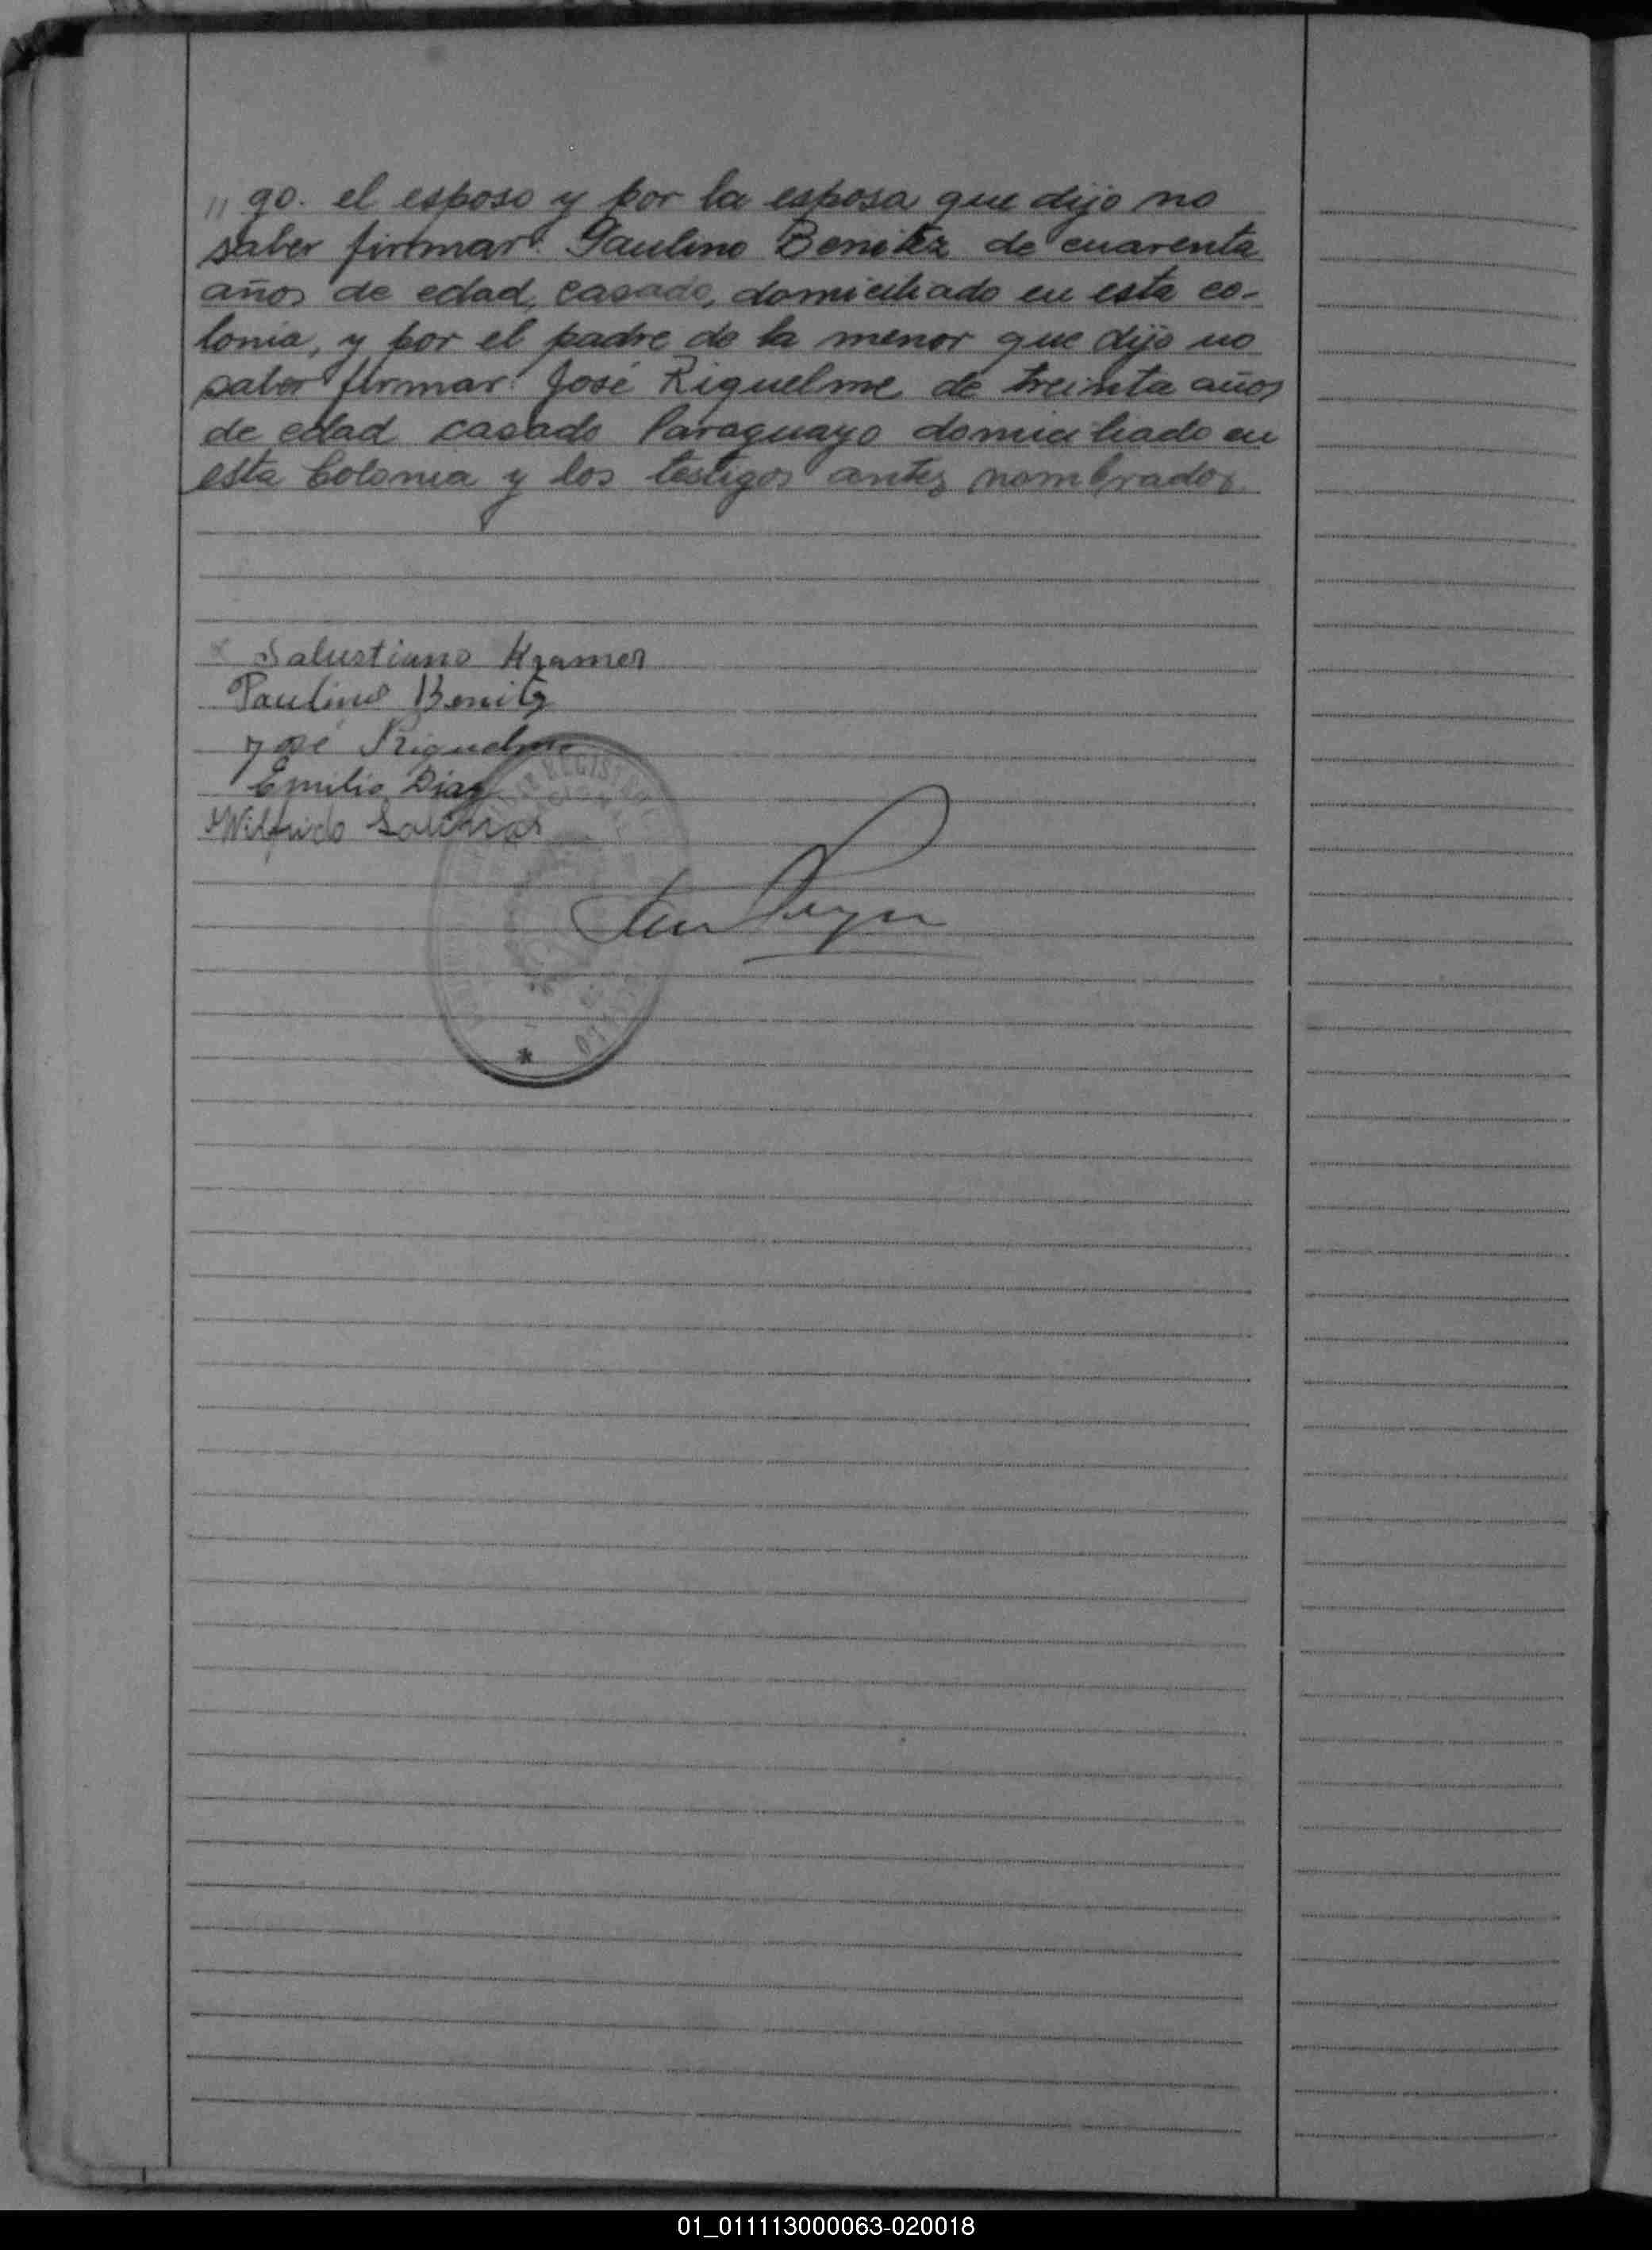 " go. el esposo y por la esposa que dijo no
saber firmar: Paulino Benitez de cuarenta
años de edad, casado, domiciliado en esta co-
lonia, y por el padre de la menor que dijo no
saber firmar: José Riquelme de treinta años
de edad casado Paraguayo domiciliado en
esta Colonia y los testigos antes nombrados
Salustiano Kramer
Paulino Benitz
José Riquelme
Emilio Diaz
Wilfrido
REGIST
01_011113000063-020018